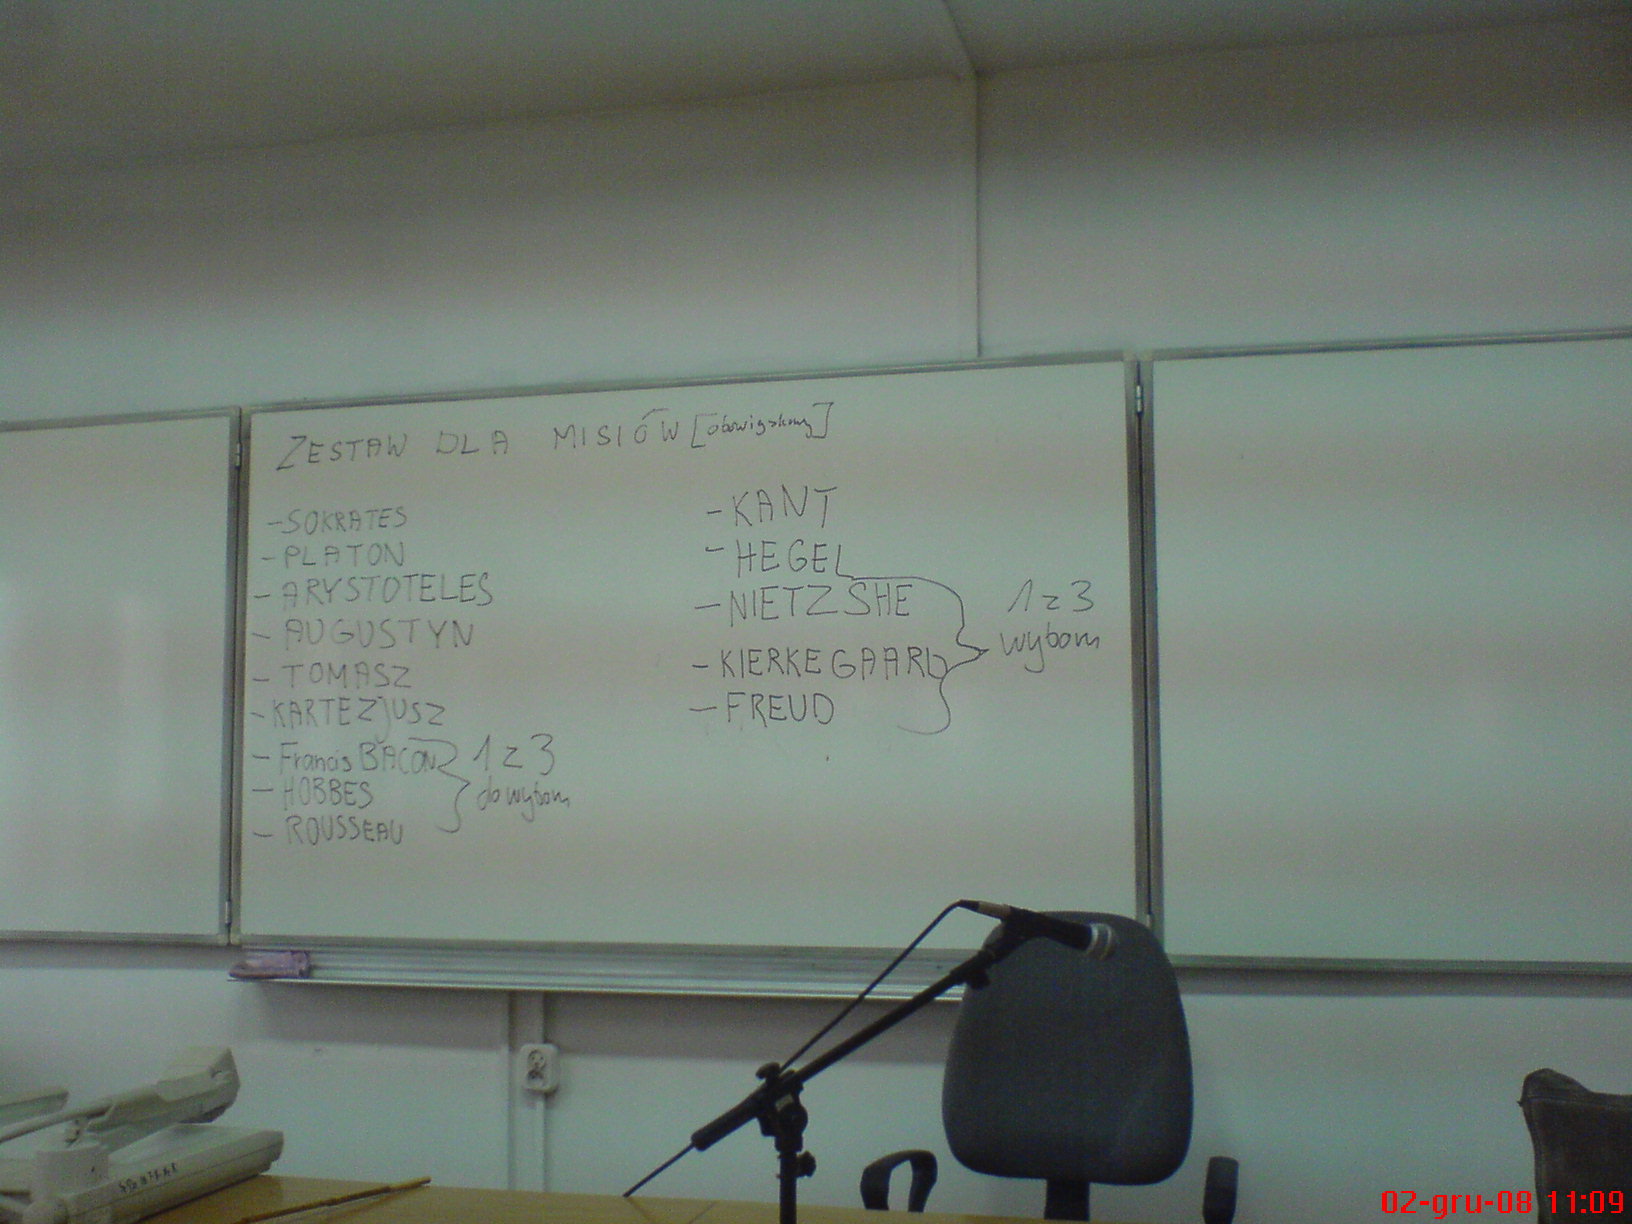 ZESTAW DLA MISIÓW [obowiązkowy]
- SOKRATES
- PLATON
- ARYSTOTELES
- AUGUSTYN
- TOMASZ
- KARTEZjUSZ
- Francis BACON
- HOBBES
- ROUSSEAU
1 z 3
do wyboru
- KANT
- HEGEL
- NIETZSHE
- KIERKEGAARD
- FREUD
1 z 3
wyboru
02-gru-08 11:09